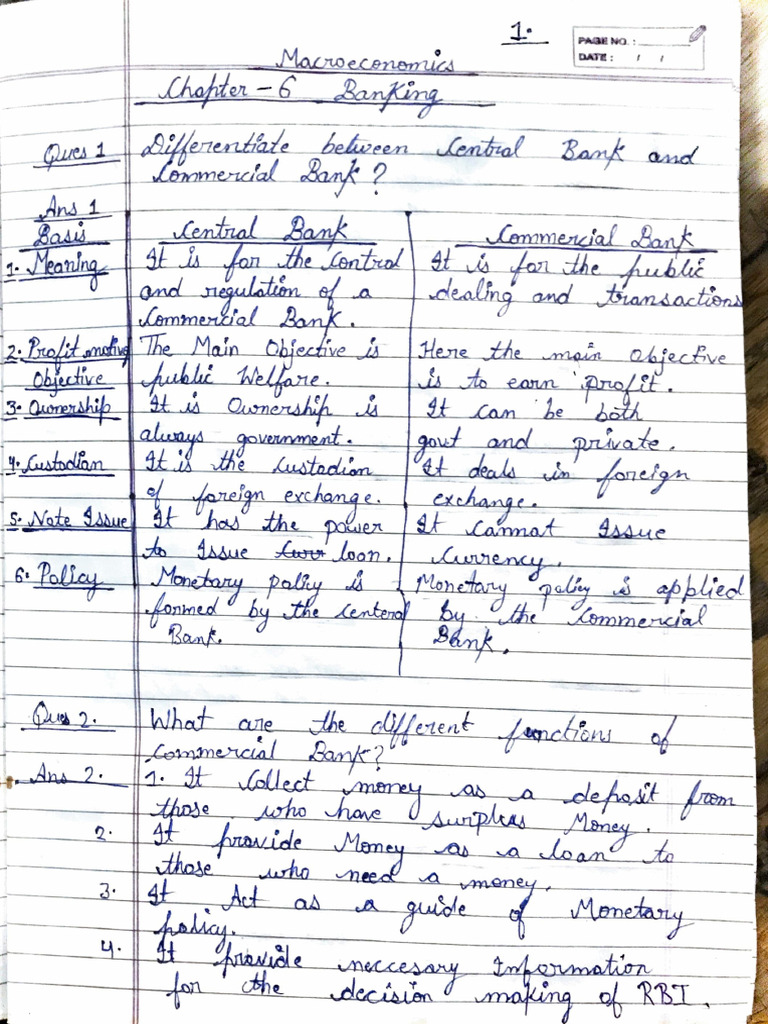 1.
PAGE NO. :
DATE : / /
Macroeconomics
Chapter - 6 Banking
Ques 1 Differentiate between Central Bank and
Commercial Bank?
Ans 1
Basis Central Bank Commercial Bank
1. Meaning It is for the control It is for the public
and regulation of a dealing and transactions
Commercial Bank.
2. Profit motive The Main Objective is Here the main objective
Objective public Welfare. is to earn profit.
3. Ownership It is Ownership is It can be both
always government. govt and private.
4. Custodian It is the custodion It deals in foreign
of foreign exchange. exchange.
5. Note Issue It has the power It cannot Issue
to Issue Curr loan. Currency.
6. Policy Monetary policy is Monetary policy is applied
formed by the Centeral by the Commercial
Bank. Bank.
Ques 2. What are the different functions of
Commercial Bank?
Ans 2. 1. It Collect money as a deposit from
those who have surplus Money.
2. It provide Money as a loan to
those who need a money.
3. It Act as a guide of Monetary
policy.
4. It provide neccesary Information
for the decision making of RBI.